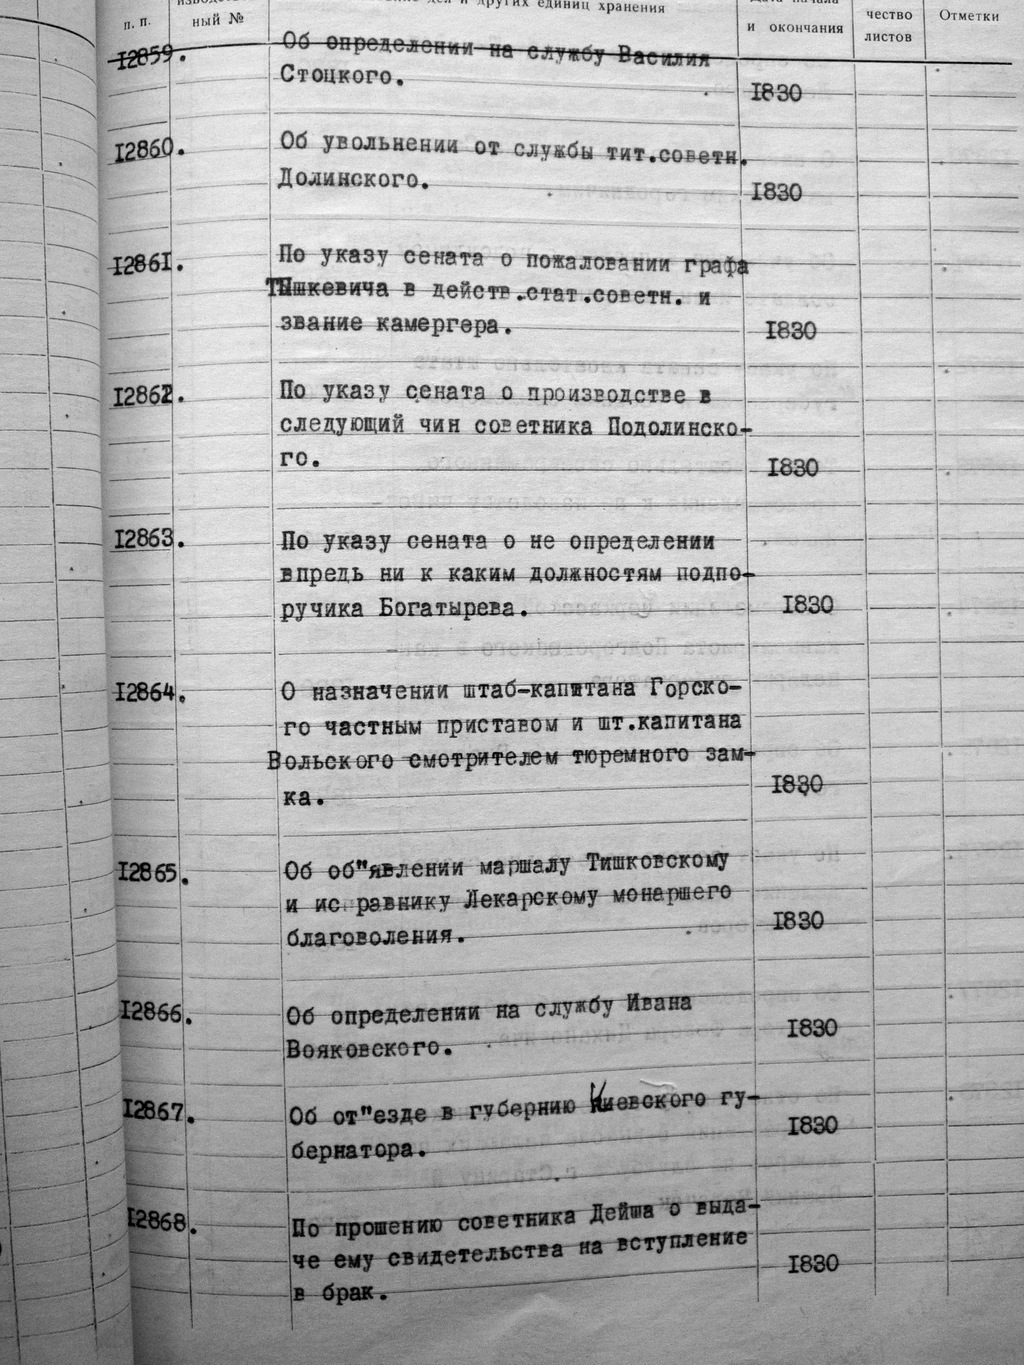 п. п.
ный №
других единиц хранения
и окончания
чество
листов
Отметки
12859.
Об определении на службу Василия
Стоцкого.
1830
12860.
Об увольнении от службы тит.советн.
Долинского.
1830
12861.
По указу сената о пожаловании графа
Тышкевича в действ.стат.советн. и
звание камергера.
1830
12862.
По указу сената о производстве в
следующий чин советника Подолинско-
го.
1830
12863.
По указу сената о не определении
впредь ни к каким должностям подпо-
ручика Богатырева.
1830
12864.
О назначении штаб-капитана Горско-
го частным приставом и шт.капитана
Вольского смотрителем тюремного зам-
ка.
1830
12865.
Об об"явлении маршалу Тишковскому
и исправнику Лекарскому монаршего
благоволения.
1830
12866.
Об определении на службу Ивана
Вояковского.
1830
12867.
Об от"езде в губернию Киевского гу-
бернатора.
1830
12868.
По прошению советника Дейша о выда-
че ему свидетельства на вступление
в брак.
1830